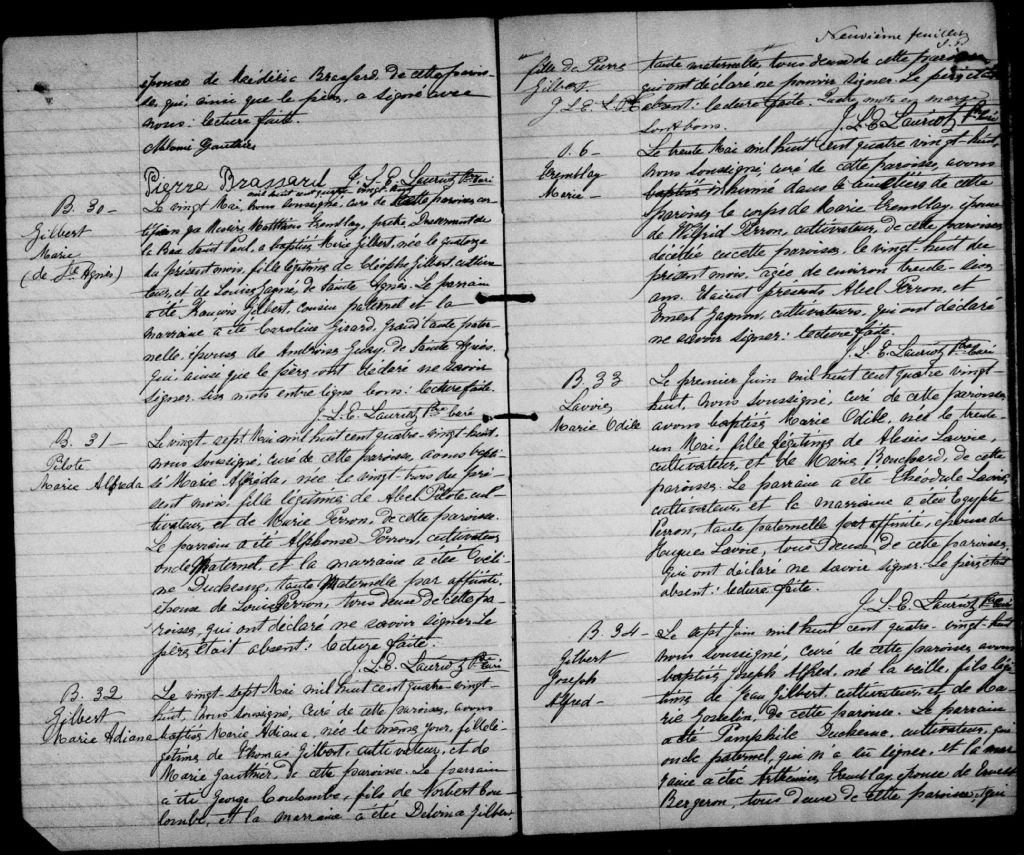 épouse de Médéric Brassard de cette parois-
se qui, ainsi que le père, a signé avec
nous: lecture faite.
Pierre Brassard J. L. E. Lauriot Ptre Curé
mil huit cent quatre vingt huit
B. 30 -
Gilbert
Marie
(de Ste Agnès)
Le vingt Mai, nous soussigné, curé de cette paroisse
Tremblay, prêtre, Desservant de
la Baie Saint Paul, a baptisé Marie Gilbert, née le quatorze
du présent mois, fille légitime de Cléophe Gilbert, cultiva-
teur, et de Louise Gagné, de Sainte Agnès. Le parrain
a été François Gilbert, cousin paternel et la
marraine a été Caroline Girard, grand'tante pater-
nelle, épouse de Guay, de Sainte Agnès,
qui, ainsi que le père, ont déclaré ne savoir
signer. Six mots entre ligne bons: lecture faite.
J. L. E. Lauriot Ptre Curé
B. 31 -
Pilote
Marie Alfreda
Le vingt-sept Mai mil huit cent quatre-vingt-huit,
nous soussigné, curé de cette paroisse, avons bapti-
sé Marie Alfreda, née le vingt trois du pré-
sent mois, fille légitime de Abel Pilote, cul-
tivateur, et de Marie Perron, de cette paroisse.
Le parrain a été Alphonse Perron, cultivateur,
oncle Maternel, et la marraine a étée Evéli-
ne Duchesne, tante Maternelle par affinité,
épouse de Louis Perron, tous deux de cette pa-
roisse, qui ont déclaré ne savoir signer. Le
père était absent: lecture faite.
J. L. E. Lauriot Ptre Curé
B. 32
Gilbert
Marie Adiana
Le vingt-sept Mai mil huit cent quatre-vingt-
huit, nous soussigné, curé de cette paroisse, avons
baptisé Marie Adiana, née le même jour, fille lé-
gitime de Thomas Gilbert, cultivateur, et de
Marie Gauthier, de cette paroisse. Le parrain
a été George Coulombe, fils de Norbert Cou-
lombe, et la marraine a étée Delvina Gilbert,
Neuvième feuillet
fille de Pierre
Gilbert.
J. L. E. L. Ptre
tante maternelle, tous deux de cette paroisse
qui ont déclaré ne pouvoir signer. Le père était
absent: lecture faite. Quatre mots en marge
sont bons.
J. L. E. Lauriot Ptre Curé
S. 6 -
Tremblay
Marie -
Le trente Mai mil huit cent quatre vingt-huit,
nous soussigné, curé de cette paroisse, avons
baptisé inhumé dans le cimetière de cette
paroisse le corps de Marie Tremblay, épouse
de Wilfrid Perron, cultivateur, de cette paroisse,
décédée en cette paroisse, le vingt-huit du
présent mois, agée de environ trente-six
ans. Etaient présents Abel Perron, et
Ernest Gagnon, cultivateurs, qui ont déclaré
ne savoir signer: lecture faite.
J. L. E. Lauriot Ptre Curé
B. 33
Lavoie
Marie Odile
Le premier Juin mil huit cent quatre vingt-
huit, nous soussigné, curé de cette paroisse,
avons baptisé Marie Odile, née le trente-
un Mai, fille légitime de Alexis Lavoie,
cultivateur, et de Marie Bouchard, de cette
paroisse. Le parrain a été Théodule Lavoie,
cultivateur, et la marraine a étée Egypte
Perron, tante paternelle par affinité, épouse de
Hugues Lavoie, tous Deux de cette paroisse,
qui ont déclaré ne savoir signer. Le père était
absent: lecture faite.
J. L. E. Lauriot Ptre Curé
B. 34 -
Gilbert
Joseph
Alfred -
Le sept Juin mil huit cent quatre-vingt-huit
nous soussigné, curé de cette paroisse, avons
baptisé Joseph Alfred, né la veille, fils légi-
time de Jean Gilbert, cultivateur, et de Ma-
rie Gosselin, de cette paroisse. Le parrain
a été Pamphile Duchesne, cultivateur,
oncle paternel, et la mar-
raine a étée Tremblay, épouse de Ernest
Bergeron, tous deux de cette paroisse, qui